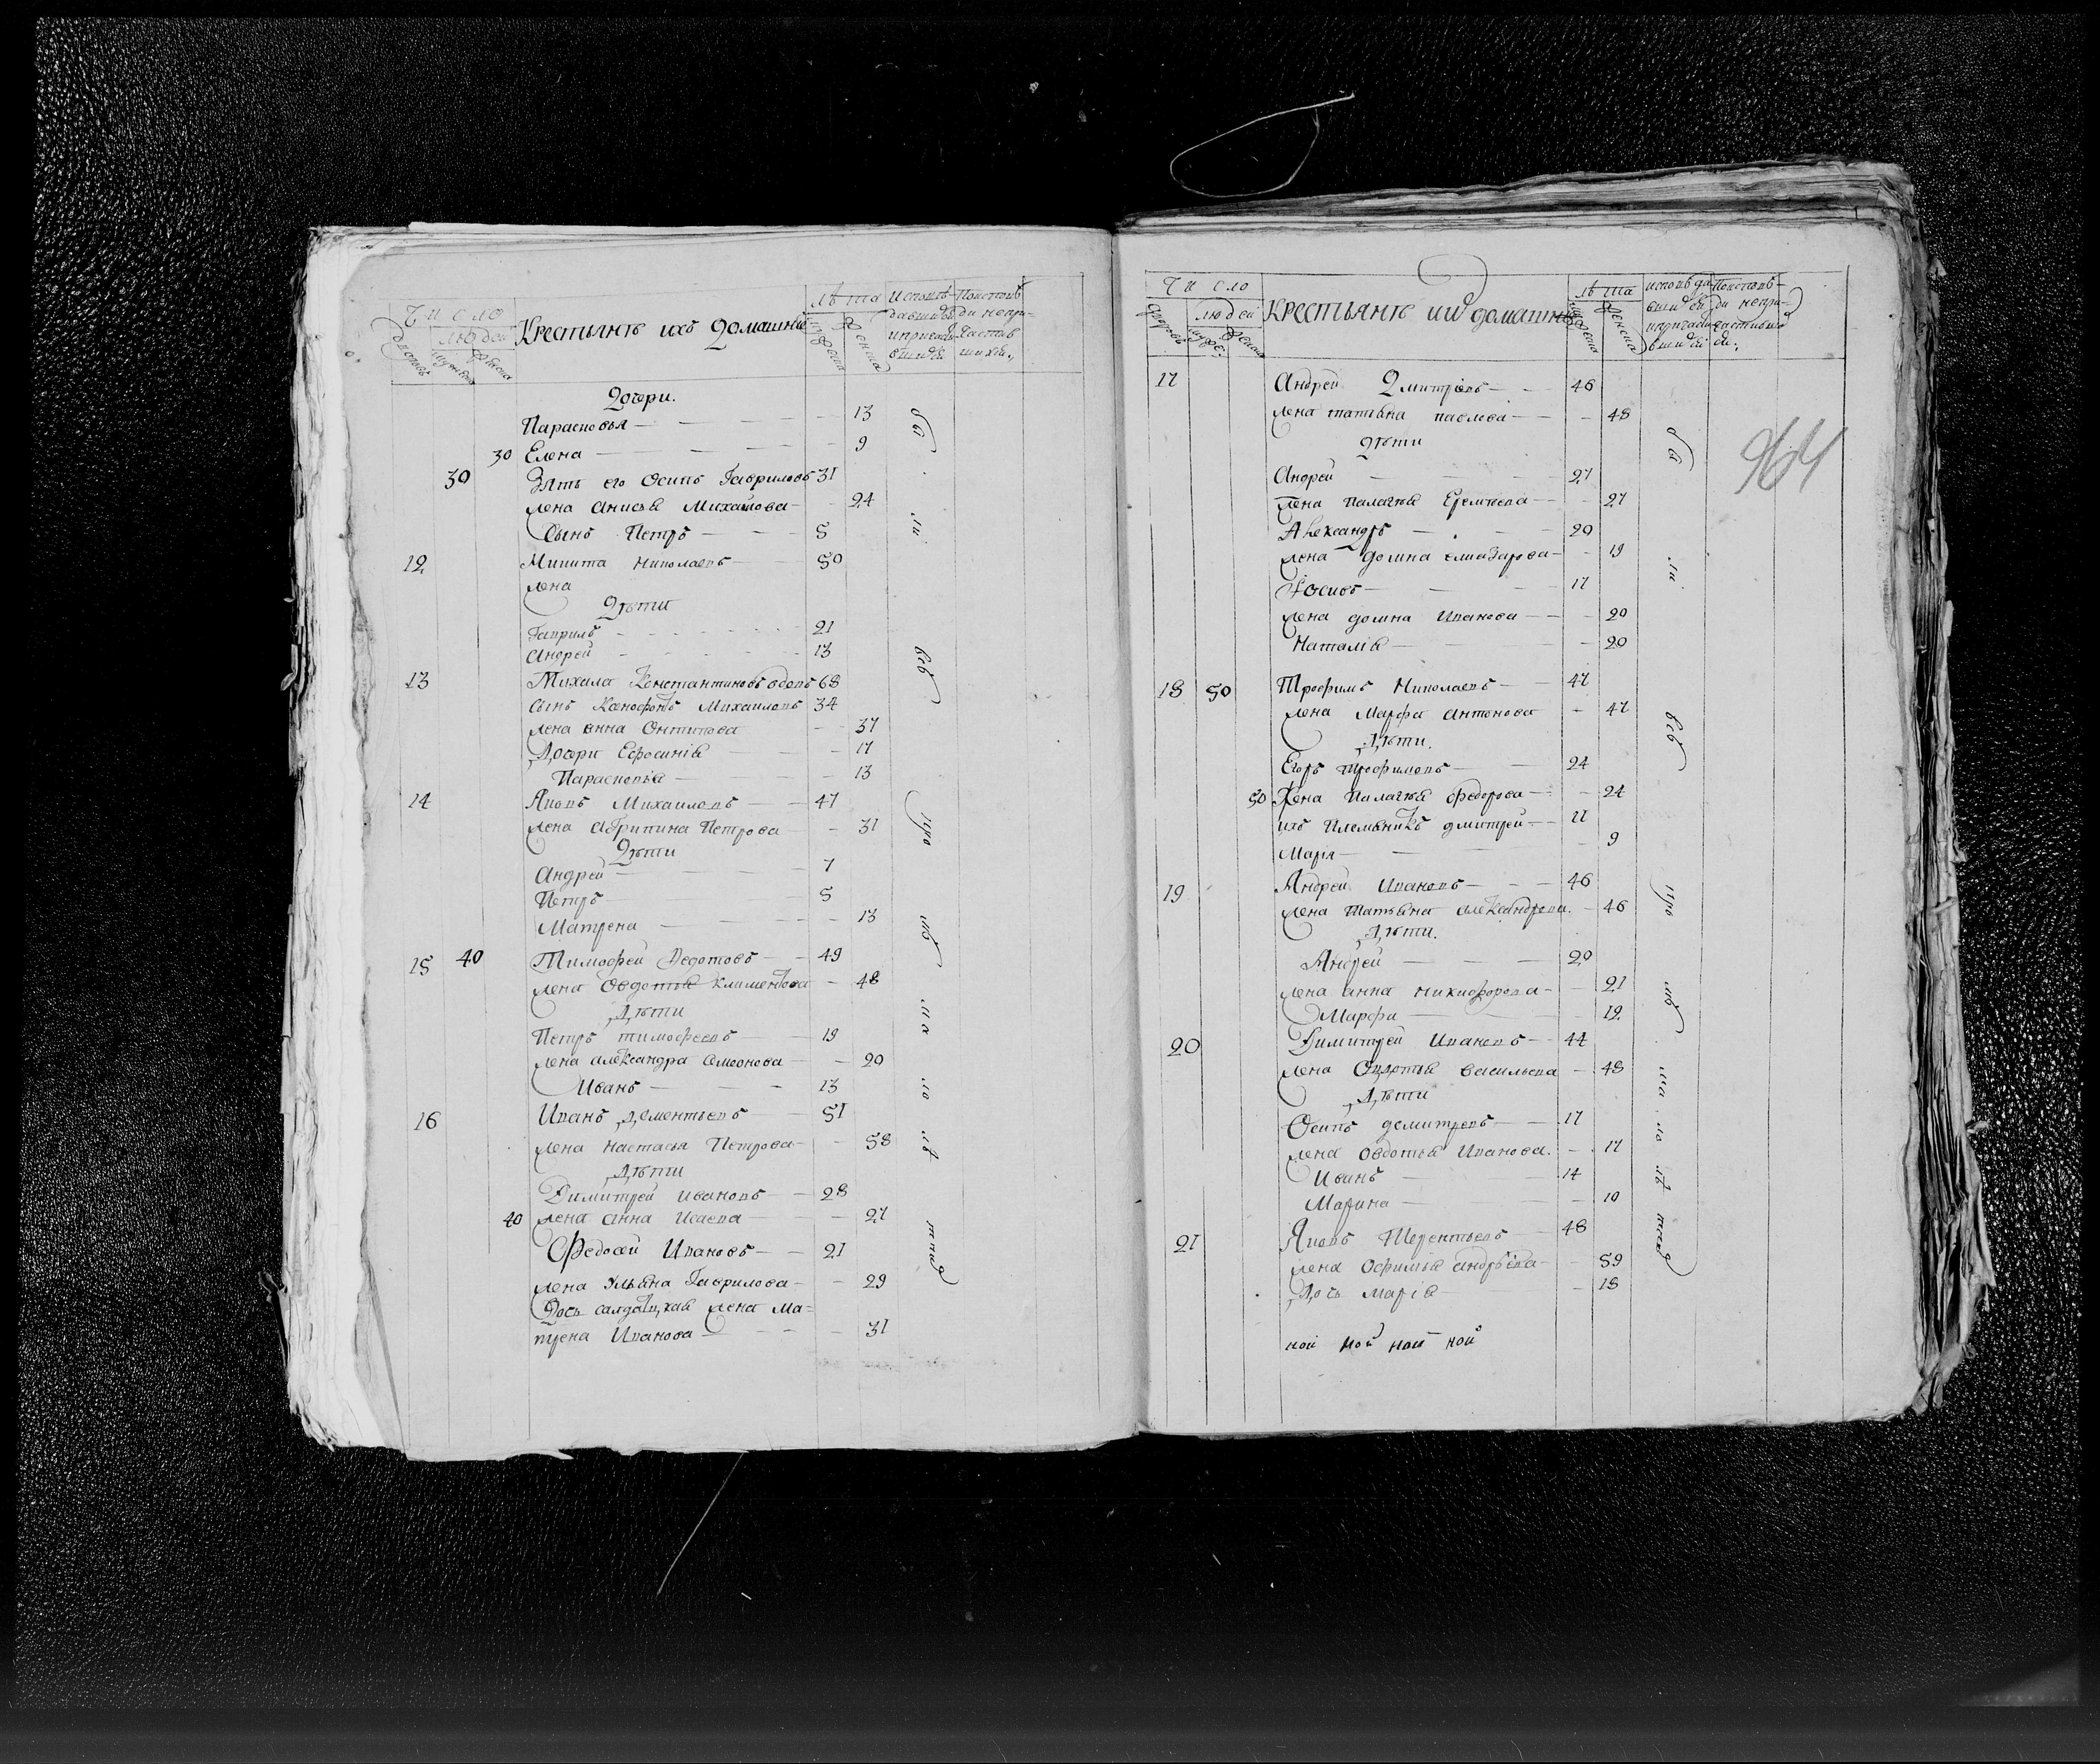 Число
людей
Крестьянѣ ихъ домашние
лѣта
дворовъ
мужеска
женска
Дочери.
Парасковья — 13
30 Елена — 9
30 Зять его Осипъ Гавриловъ 31
жена Анисья Михайлова — 24
Сынъ Петръ — 5
12 Никита Николаевъ — 50
жена
Дѣти
Гаврилъ — 21
Андрей — 13
13 Михаила Константиновъ вдовъ 68
сынъ Ксенофонтъ Михаиловъ 34
жена анна Онтипова — 37
Дочери Ефросинія — 17
Парасковья — 13
14 Яковъ Михаиловъ — 47
жена Агрипина Петрова — 31
Дѣти
Андрей — 7
Петръ 5
Матрена — 13
15 40 Тимофей Федотовъ — 49
жена Овдотья Климентова — 48
Дѣти
Петръ тимофеевъ — 19
жена александра Семеонова — 20
Иванъ — 13
16 Иванъ Дементьевъ — 51
жена настасья Петрова — 58
Дѣти
Димитрей ивановъ — 28
40 жена анна Исаева — 27
Федосей Ивановъ — 21
жена Ульяна Гаврилова — 29
Дочь салдатская жена Ма-
трена Иванова — 31
Число
людей
Крестьянѣ ихъ домашние
лѣта
дворовъ
мужеска
женска
17 Андрей Дмитріевъ — 46
жена татьяна павлова — 48
дѣти
Андрей — 27
жена Палагѣя Еремѣева — 27
Александръ — 20
жена домна елиазарова — 19
Іосивъ — 17
жена домна Иванова — 20
Наталія — 20
18 50 Трофимъ Николаевъ — 47
жена Марфа антонова — 47
Дѣти.
Егоръ трофимовъ — 24
50 Жена Палагѣя федорова — 24
ихъ племянникъ дмитрей — 11
Марія — 9
19 Андрей Ивановъ — 46
жена Татьяна александрова. — 46
Дѣти.
Андрей — 20
жена анна никифорова — 21
Марфа — 12
20 Димитрей Ивановъ — 44
жена Овдотья васильева — 48
Дѣти
Осипъ демитревъ — 17
жена овдотья Иванова. — 17
Иванъ — 14
Марина — 10
21 Яковъ Терентьевъ — 48
жена Офимья андрѣева — 59
Дочь Марія — 18
ной ной ной ной
964